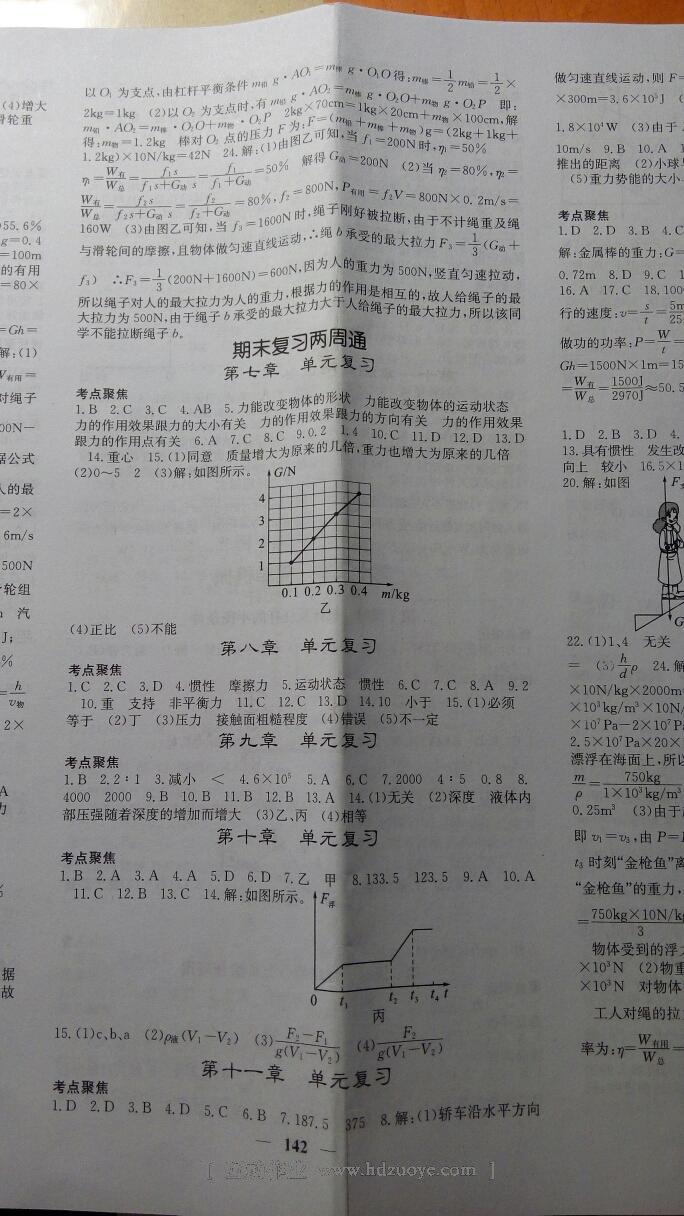 以O₁为支点,由杠杆平衡条件m铅g·AO₁=m棒g·O₁O得:m棒=1/2m铅=1/2×
2kg=1kg (2)以O₂为支点时,有m铅g·AO₂=m棒g·O₂O+m物g·O₂P 即:
m铅·AO₂=m棒·O₂O+m物·O₂P 2kg×70cm=1kg×20cm+m物×100cm,解
得:m物=1.2kg 棒对O₂点的压力F为:F=(m铅+m棒+m物)g=(2kg+1kg+
1.2kg)×10N/kg=42N 24.解:(1)由图乙可知,当f₁=200N时,η₁=50%
η₁=W有/W总=f₁s/(f₁s+G动s)=f₁/(f₁+G动)=50% 解得G动=200N (2)当η₂=80%,η₂=
W有/W总=f₂s/(f₂s+G动s)=f₂/(f₂+G动)=80%,f₂=800N,P有用=f₂V=800N×0.2m/s=
160W (3)由图乙可知,当f₃=1600N时,绳子刚好被拉断,由于不计绳重及绳
与滑轮间的摩擦,且物体做匀速直线运动,∴绳b承受的最大拉力F₃=1/3(G动+
f₃) ∴F₃=1/3(200N+1600N)=600N,因为人的重力为500N,竖直匀速拉动,
所以绳子对人的最大拉力为人的重力,根据力的作用是相互的,故人给绳子的最
大拉力为500N,由于绳子b承受的最大拉力大于人给绳子的最大拉力,所以该同
学不能拉断绳子b。
期末复习两周通
第七章 单元复习
考点聚焦
1.B 2.C 3.C 4.AB 5.力能改变物体的形状 力能改变物体的运动状态
力的作用效果跟力的大小有关 力的作用效果跟力的方向有关 力的作用效果
跟力的作用点有关 6.A 7.C 8.C 9.0.2 1.4 10.C 11.D 12.D 13.D
14.重心 15.(1)同意 质量增大为原来的几倍,重力也增大为原来的几倍
(2)0~5 2 (3)解:如图所示。
G/N
4
3
2
1
0.1 0.2 0.3 0.4 m/kg
乙
(4)正比 (5)不能
第八章 单元复习
考点聚焦
1.C 2.C 3.D 4.惯性 摩擦力 5.运动状态 惯性 6.C 7.C 8.A 9.2
10.重 支持 非平衡力 11.C 12.C 13.D 14.10 小于 15.(1)必须
等于 (2)丁 (3)压力 接触面粗糙程度 (4)错误 (5)不一定
第九章 单元复习
考点聚焦
1.B 2.2∶1 3.减小 < 4.6×10⁵ 5.A 6.C 7.2000 4∶5 0.8 8.
4000 2000 9.B 10.B 11.B 12.B 13.A 14.(1)无关 (2)深度 液体内
部压强随着深度的增加而增大 (3)乙、丙 (4)相等
第十章 单元复习
考点聚焦
1.B 2.A 3.A 4.A 5.D 6.D 7.乙 甲 8.133.5 123.5 9.A 10.A
11.C 12.B 13.C 14.解:如图所示。
F浮
0 t₁ t₂ t₃ t₄ t
丙
15.(1)c、b、a (2)ρ液(V₁−V₂) (3)(F₂−F₁)/g(V₁−V₂) (4)F₂/g(V₁−V₂)
第十一章 单元复习
考点聚焦
1.D 2.D 3.B 4.D 5.C 6.B 7.187.5 375 8.解:(1)轿车沿水平方向
— 142 —
www.hdzuoye.com
(4)增大
滑轮重
55.6%
g=0.4
=100m
的有用
=80×
=Gh=
解:(1)
W有用=
对绳子
00N−
据公式
人的最
=2×
6m/s
500N
轮组
汽
J;
%
=h/v物
2×
据
故
做匀速直线运动,则F=
×300m=3.6×10⁵J
1.8×10⁴W (3)由于
10m/s 9.B 10.A
推出的距离 (2)小球
(5)重力势能的大小
考点聚焦
1.D 2.D 3.B 4.C
解:金属棒的重力:G=
0.72m 8.D 9.C
16.A 17.C 18.100
行的速度:v=s/t=
做功的功率:P=W/t=
Gh=1500N×1m=15
=W有/W总=1500J/2970J≈50.5
1.D 2.B 3.D 4.
13.具有惯性 发生改
向上 较小 16.5×1
20.解:如图
F
G
22.(1)1、4 无关
= (3)h/dρ 24.解
×10N/kg×2000m=
×10³kg/m³×10N/
×10⁷Pa−2×10⁷P
2.5×10⁷Pa×20×
漂浮在海面上,所以
m/ρ=750kg/1×10³kg/m³
0.25m³ (3)由于
即v₁=v₃,由P=F
t₃时刻“金枪鱼”离
“金枪鱼”的重力,
=750kg×10N/kg/3
物体受到的浮力
×10³N (2)物重
×10³N 对物体
工人对绳的拉力
率为:η=W有用/W总=